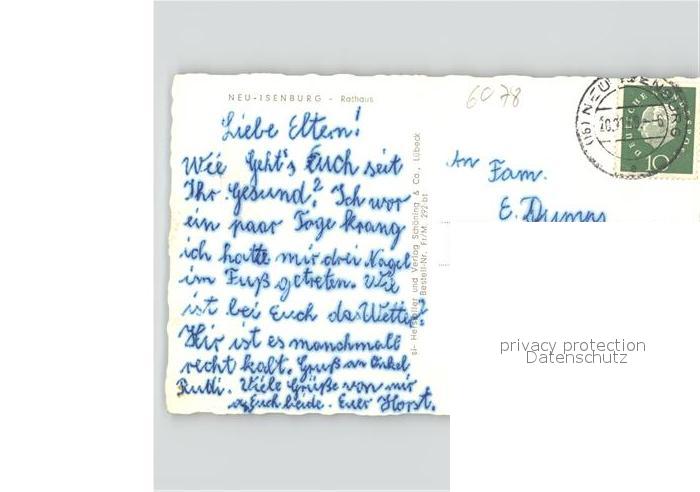 NEU-ISENBURG - Rathaus
6078
Liebe Eltern!
Wie Geht's Euch seit
Ihr Gesund? Ich wor
ein paar Tage krang
ich hatte mir drei Nagel
im Fuß getreten. Wie
ist bei Euch das Wetter?
Hir ist es manchmall
recht kalt. Gruß an Onkel
Rudi. Viele Grüße von mir
Euch beide. Euer Horst.
Hersteller und Verlag Schöning & Co., Lübeck
Bestell-Nr. Fr/M. 292 bt
An Fam.
E.
(16) NEU-ISENBURG
DEUTSCHE BUNDESPOST
10
privacy protection
Datenschutz